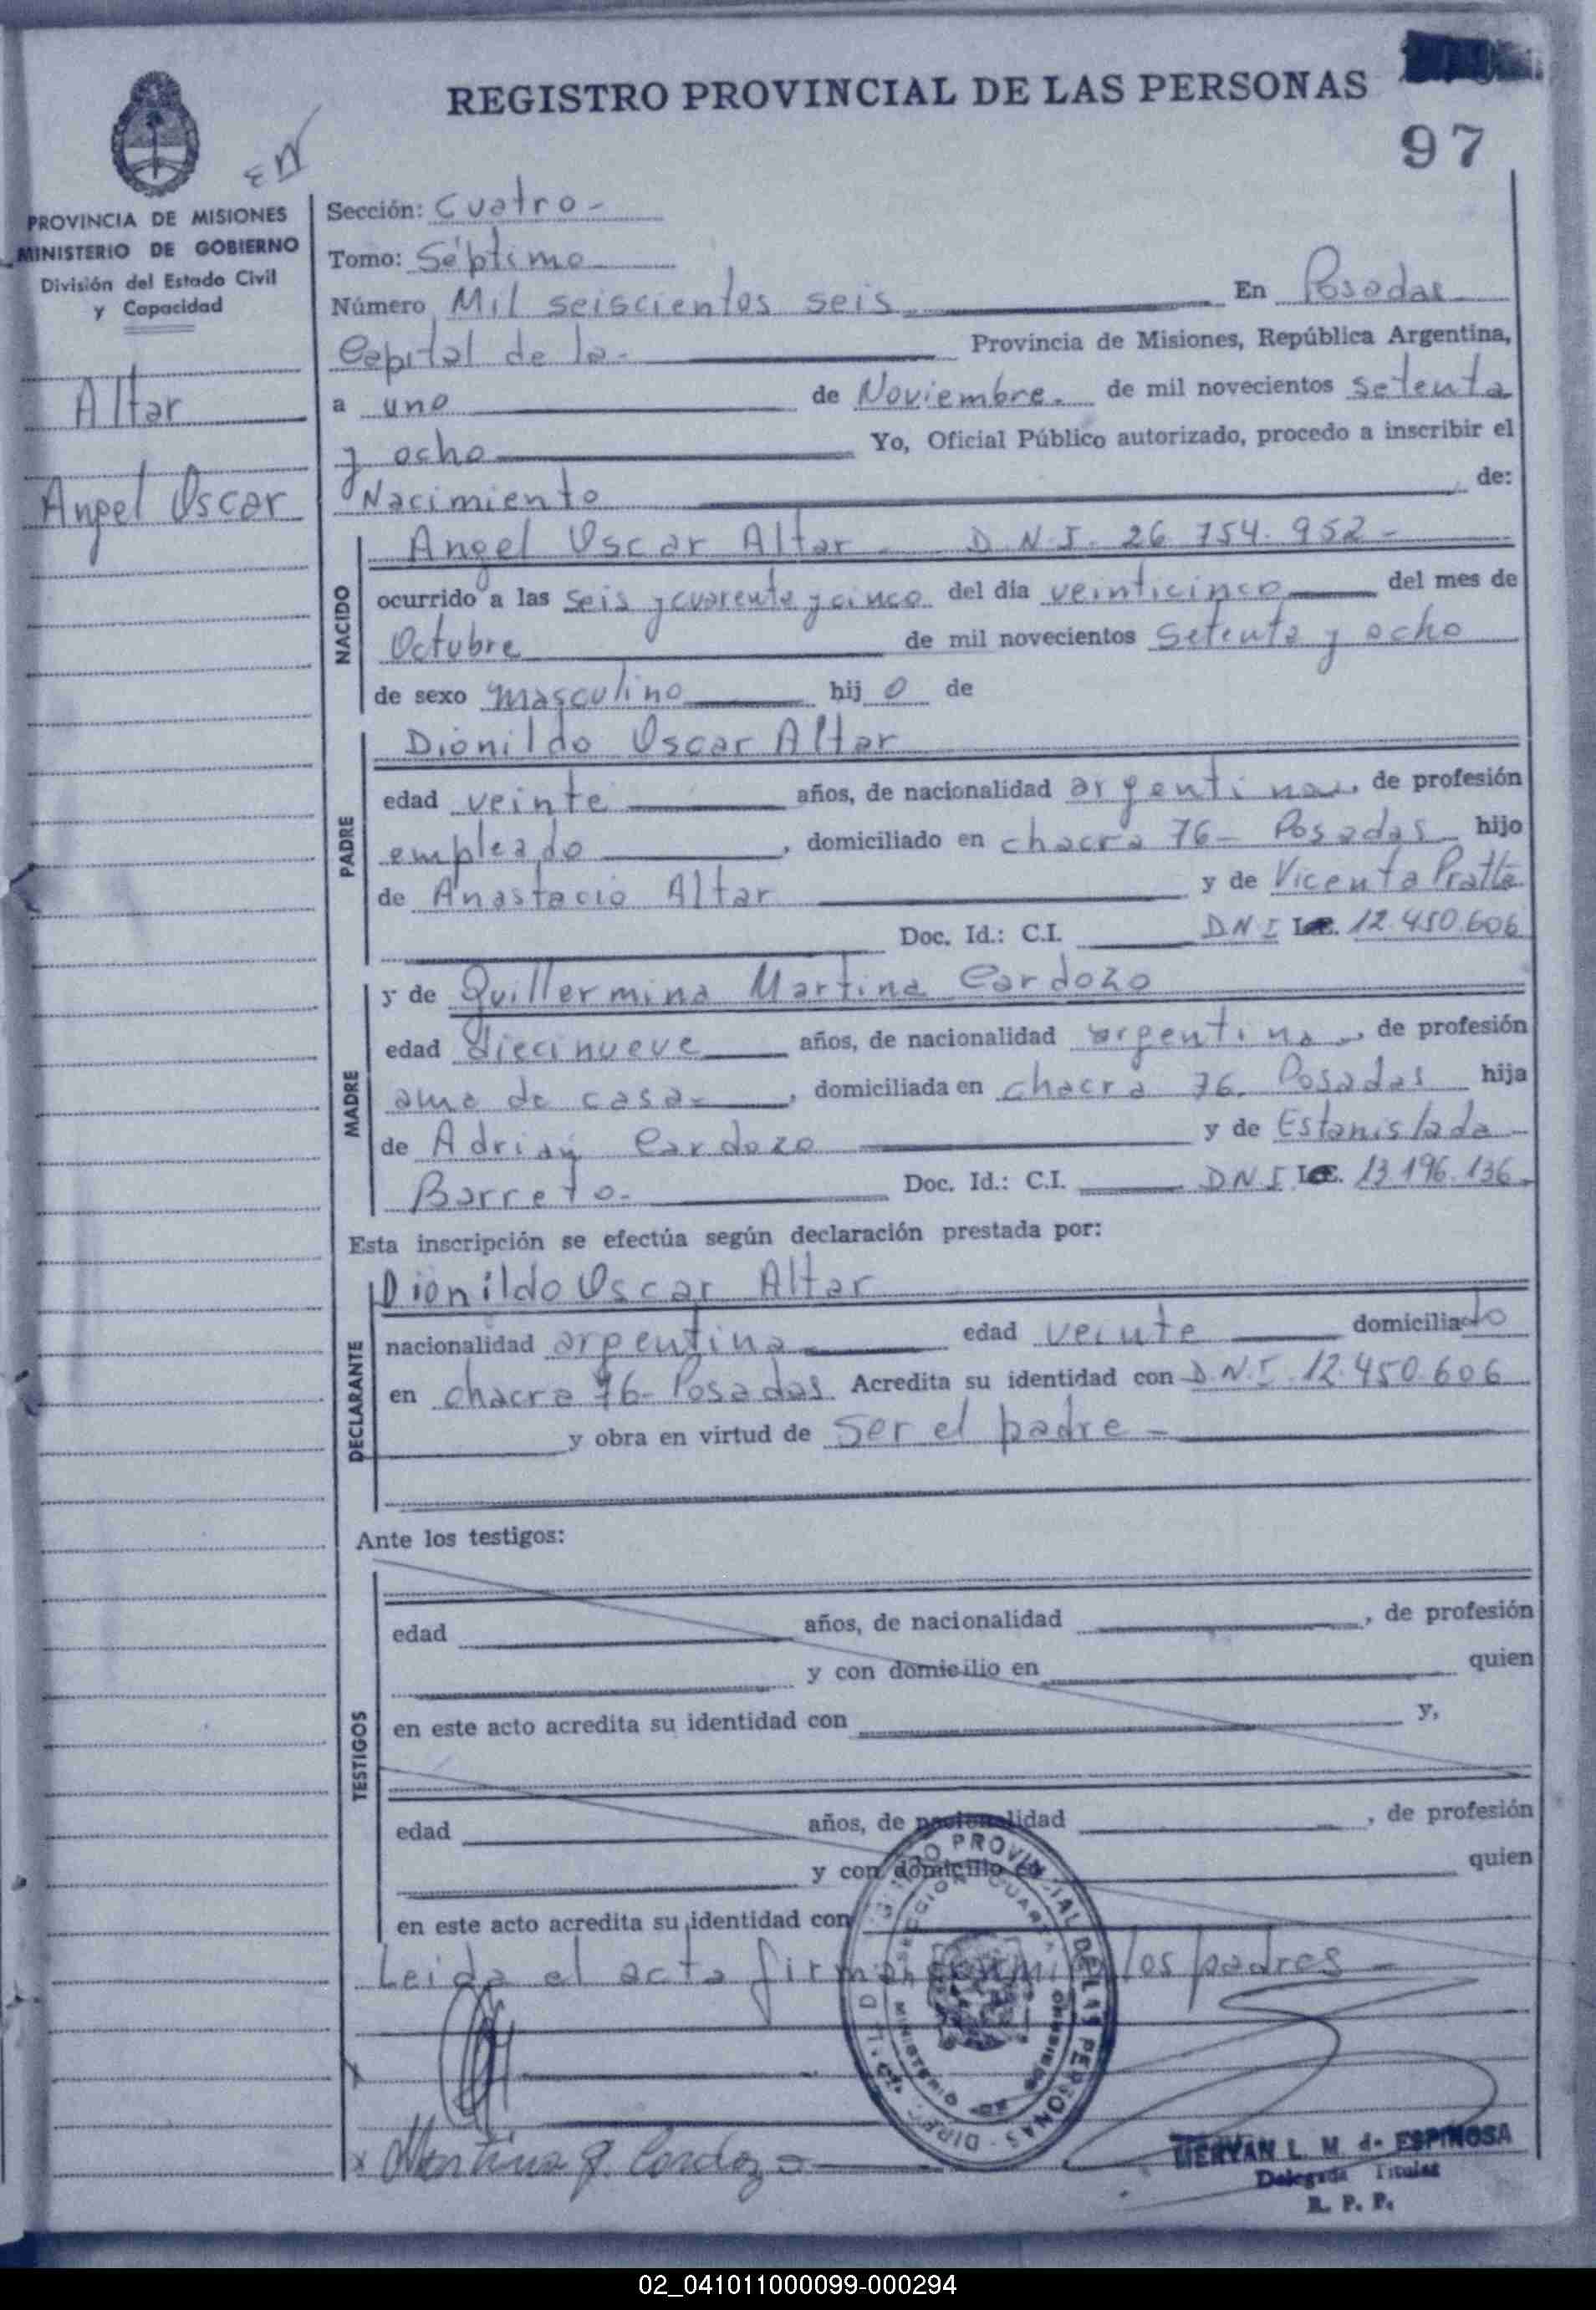 REGISTRO PROVINCIAL DE LAS PERSONAS
97
PROVINCIA DE MISIONES
MINISTERIO DE GOBIERNO
División del Estado Civil
y Capacidad
Altar
Angel Oscar
Sección: Cuatro -
Tomo: Séptimo
Número Mil seiscientos seis En Posadas
Capital de la - Provincia de Misiones, República Argentina,
a uno de Noviembre. de mil novecientos setenta
y ocho Yo, Oficial Público autorizado, procedo a inscribir el
Nacimiento de:
NACIDO
Angel Oscar Altar - D.N.I. 26.754.952 -
ocurrido a las seis y cuarenta y cinco del día veinticinco del mes de
Octubre de mil novecientos setenta y ocho
de sexo masculino hijo de
PADRE
Dionildo Oscar Altar
edad veinte años, de nacionalidad argentina, de profesión
empleado, domiciliado en chacra 76 - Posadas hijo
de Anastacio Altar y de Vicenta
Doc. Id.: C.I. DNI 12.450.606
MADRE
y de Guillermina Martina Cardozo
edad diecinueve años, de nacionalidad argentina, de profesión
ama de casa -, domiciliada en chacra 76. Posadas hija
de Adrián Cardozo y de Estanislada
Barreto. Doc. Id.: C.I. DNI 13.196.136.
Esta inscripción se efectúa según declaración prestada por:
DECLARANTE
Dionildo Oscar Altar
nacionalidad argentina edad veinte domiciliado
en chacra 76 - Posadas Acredita su identidad con D.N.I. 12.450.606
y obra en virtud de ser el padre -
Ante los testigos:
TESTIGOS
edad años, de nacionalidad , de profesión
y con domicilio en quien
en este acto acredita su identidad con y,
edad años, de nacionalidad , de profesión
y con domicilio en quien
en este acto acredita su identidad con
Leida el acta firman conmigo los padres -
REGISTRO PROVINCIAL DE LAS PERSONAS
SECCION CUARTA
MINISTERIO DE GOBIERNO
x Martina G. Cardozo
MERYAN L. M. de ESPINOSA
Delegada Titular
R. P. P.
02_041011000099-000294